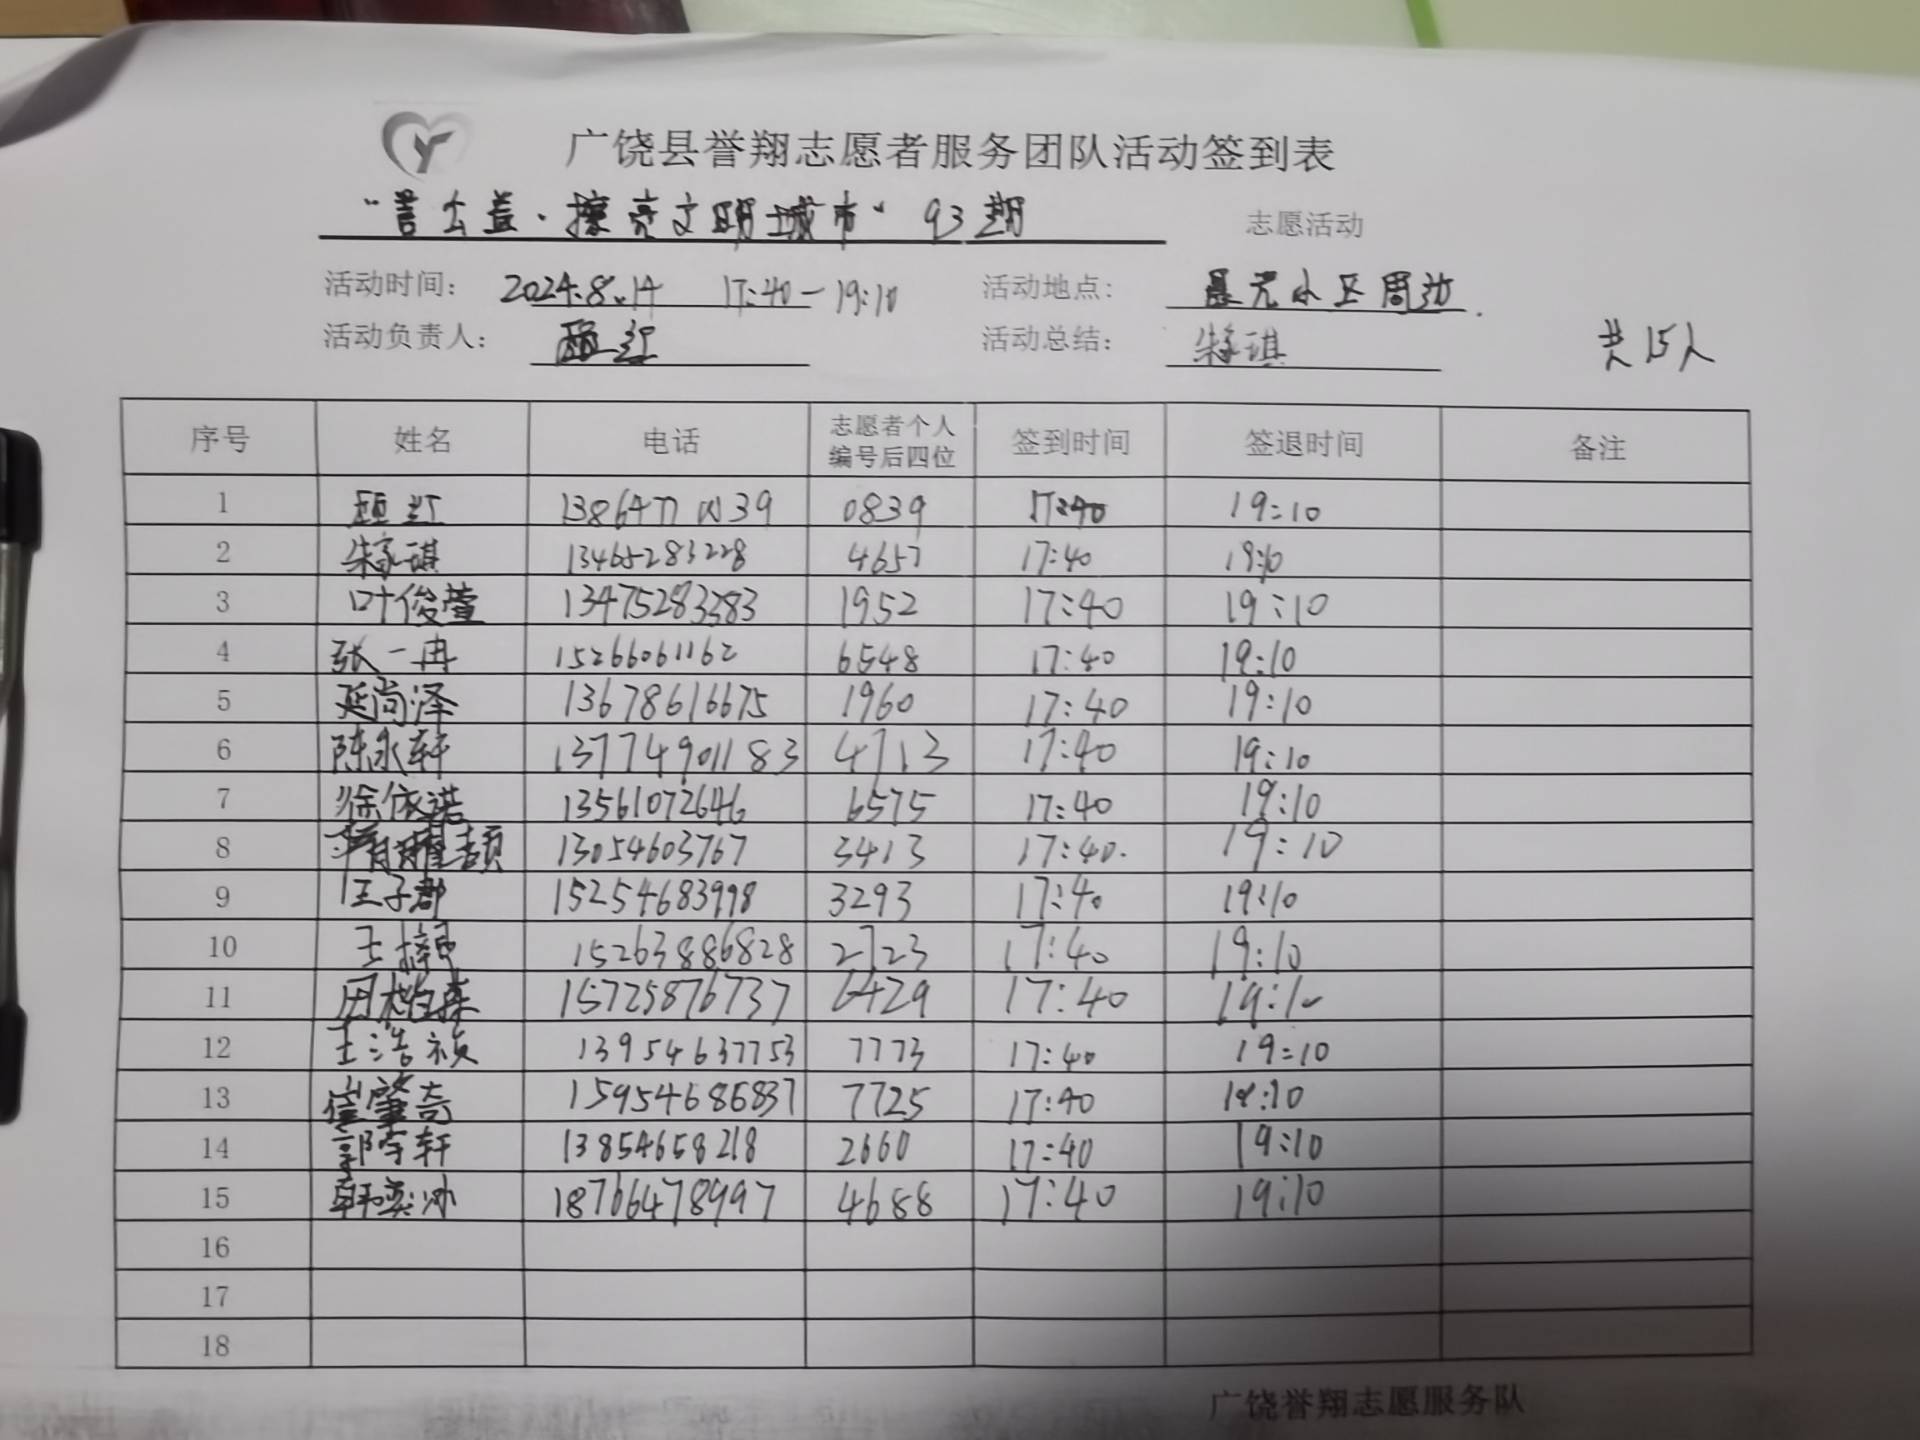 广饶县誉翔志愿者服务团队活动签到表
公益·擦亮文明城市" 93期 志愿活动
活动时间: 2024.8.14 17:40-19:10 活动地点: 晨光小区周边.
活动负责人: 红 活动总结: 朱琪 共15人
序号 姓名 电话 志愿者个人编号后四位 签到时间 签退时间 备注
1 红 0839 17:40 19:10
2 琪 13465283228 4657 17:40 19:10
3 叶俊萱 13475283283 1952 17:40 19:10
4 张一冉 15266061162 6548 17:40 19:10
5 延尚泽 13678616675 1960 17:40 19:10
6 陈永轩 13774901183 4713 17:40 19:10
7 徐依诺 13561072646 6575 17:40 19:10
8 13054603767 3413 17:40. 19:10
9 王子郡 15254683998 3293 17:40 19:10
10 王 15263886828 2723 17:40 19:10
11 15725876737 6429 17:40 19:10
12 王浩祯 13954637753 7773 17:40 19:10
13 崔肇奇 15954686837 7725 17:40 19:10
14 郭宇轩 13854658218 2660 17:40 19:10
15 韩奕冰 18766478997 4688 17:40 19:10
16
17
18
广饶誉翔志愿服务队